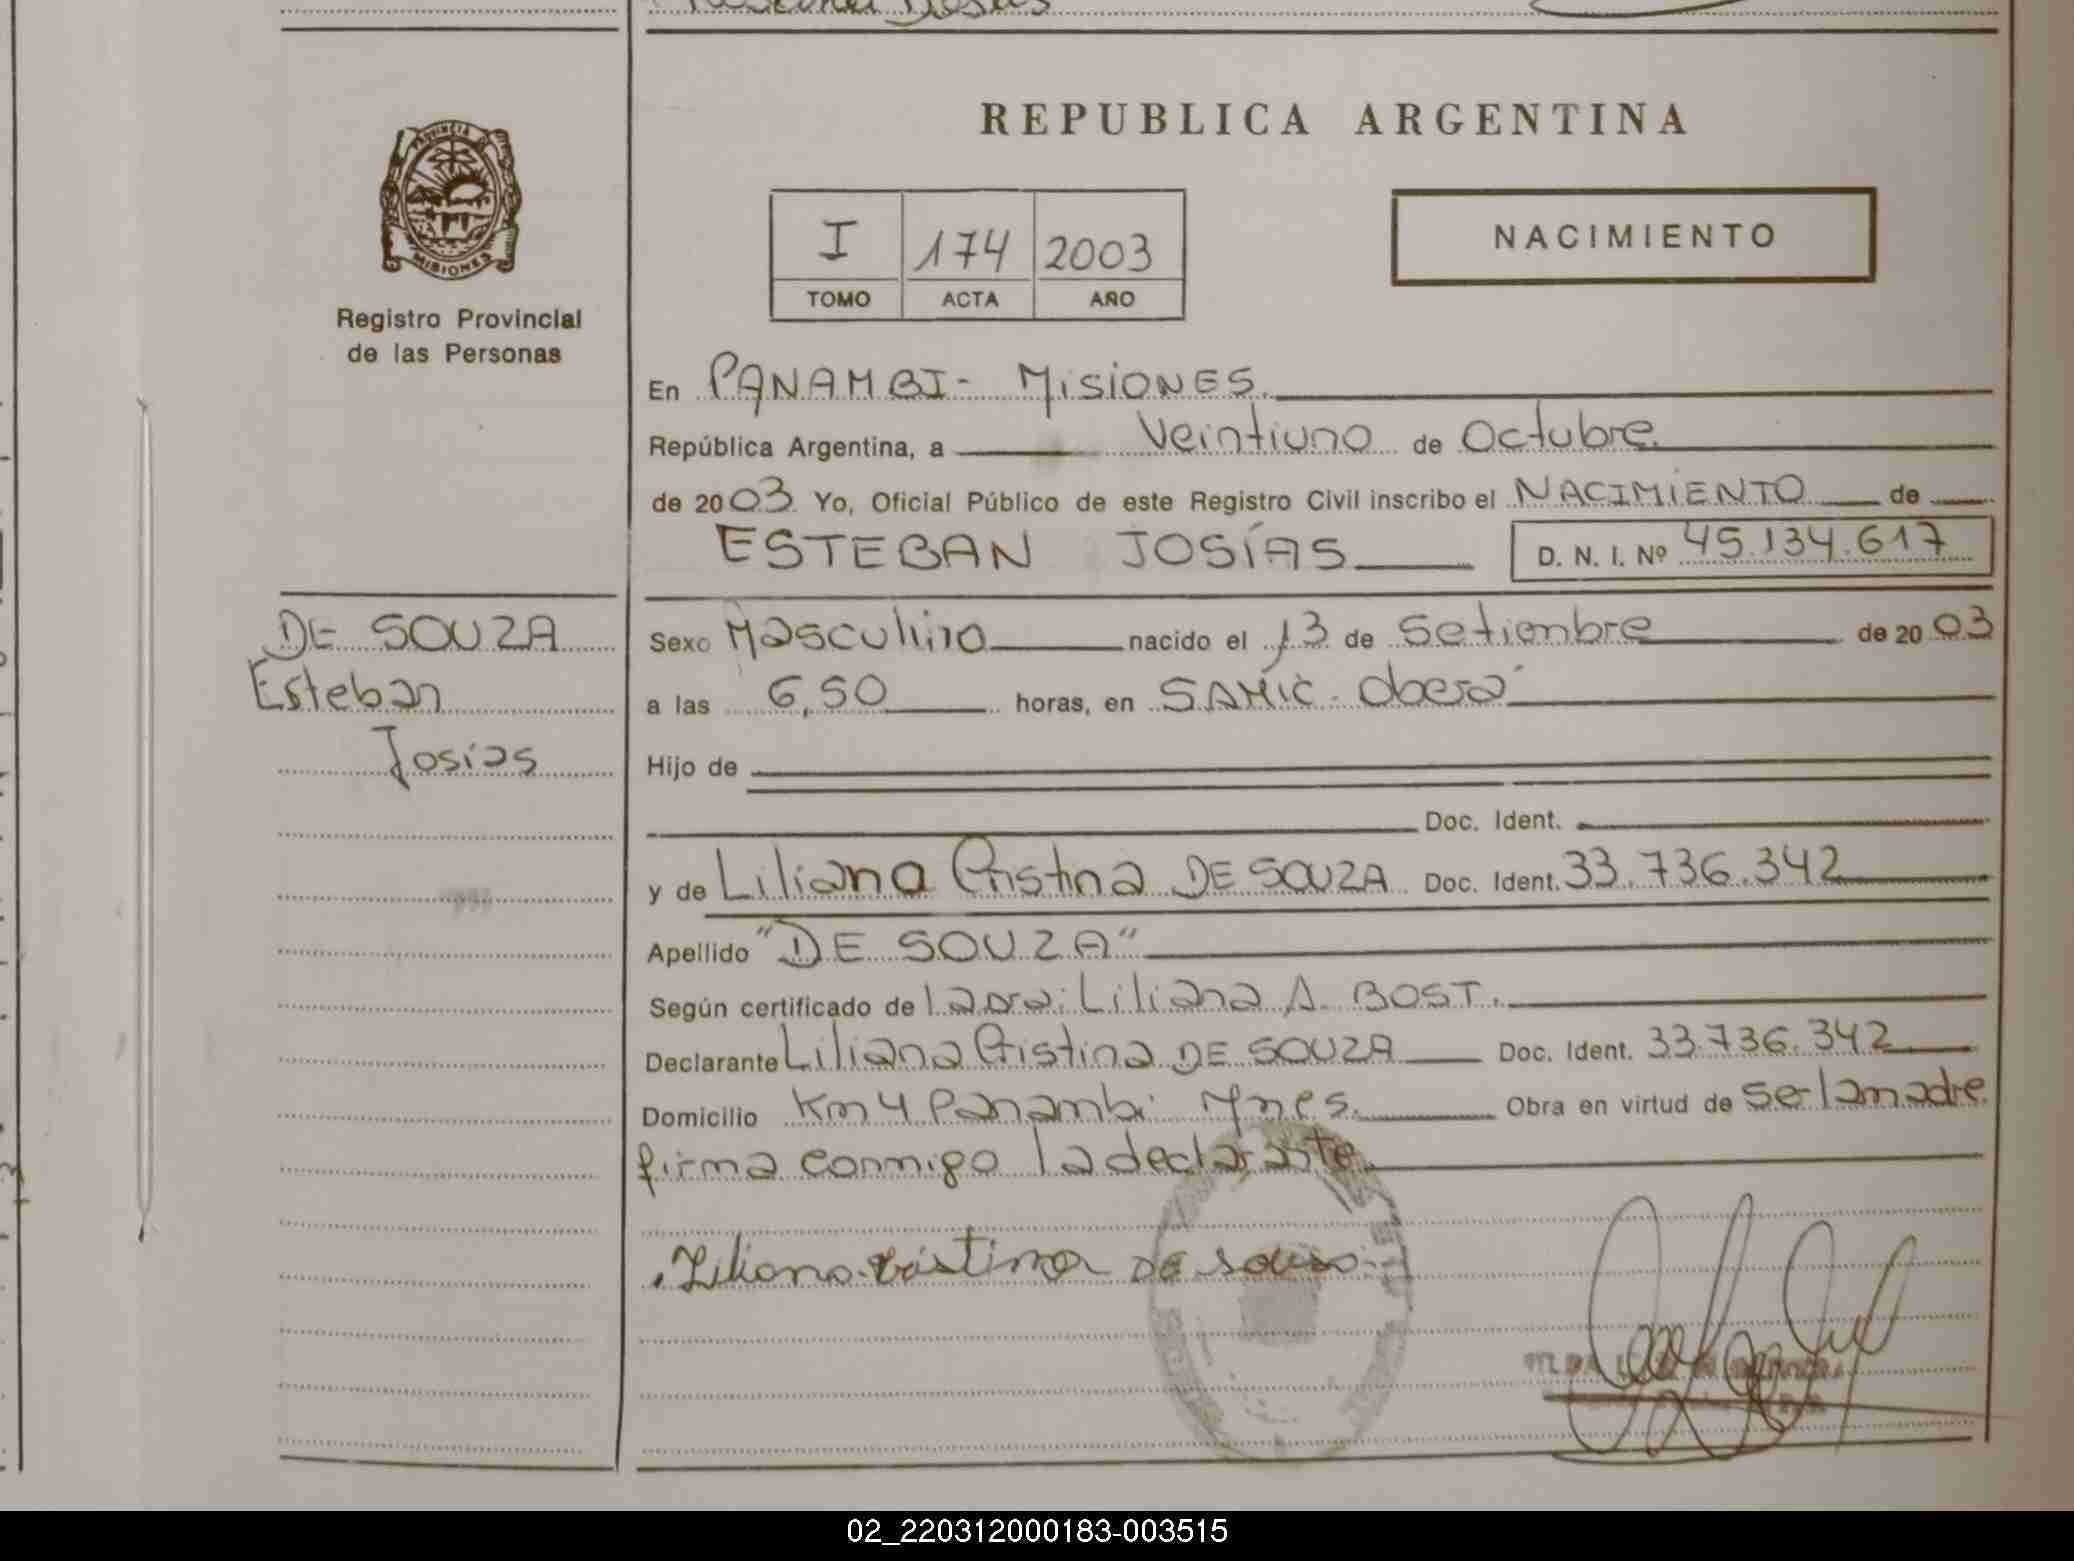 REPUBLICA ARGENTINA
PROVINCIA
MISIONES
Registro Provincial
de las Personas
I 174 2003
TOMO ACTA AÑO
NACIMIENTO
En PANAMBI - MISIONES.
República Argentina, a Veintiuno de Octubre.
de 2003 Yo, Oficial Público de este Registro Civil inscribo el NACIMIENTO de
ESTEBAN JOSÍAS D. N. I. Nº 45.134.617
DE SOUZA
Esteban
Josías
Sexo Masculino nacido el 13 de Setiembre de 2003
a las 6,50 horas, en SAMIC - Oberá
Hijo de
Doc. Ident.
y de Liliana Cristina DE SOUZA Doc. Ident. 33.736.342
Apellido "DE SOUZA"
Según certificado de la Dra: Liliana A. BOST.
Declarante Liliana Cristina DE SOUZA Doc. Ident. 33.736.342
Domicilio Km 4 Panambi Mnes. Obra en virtud de ser la madre.
firma conmigo la declarante
Liliana Cristina De Souza
02_220312000183-003515